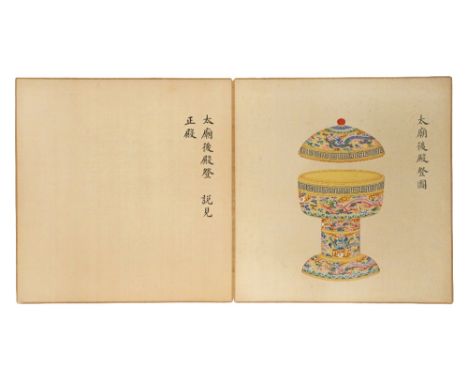 太廟後殿登圖
太廟後殿登　說見
正殿